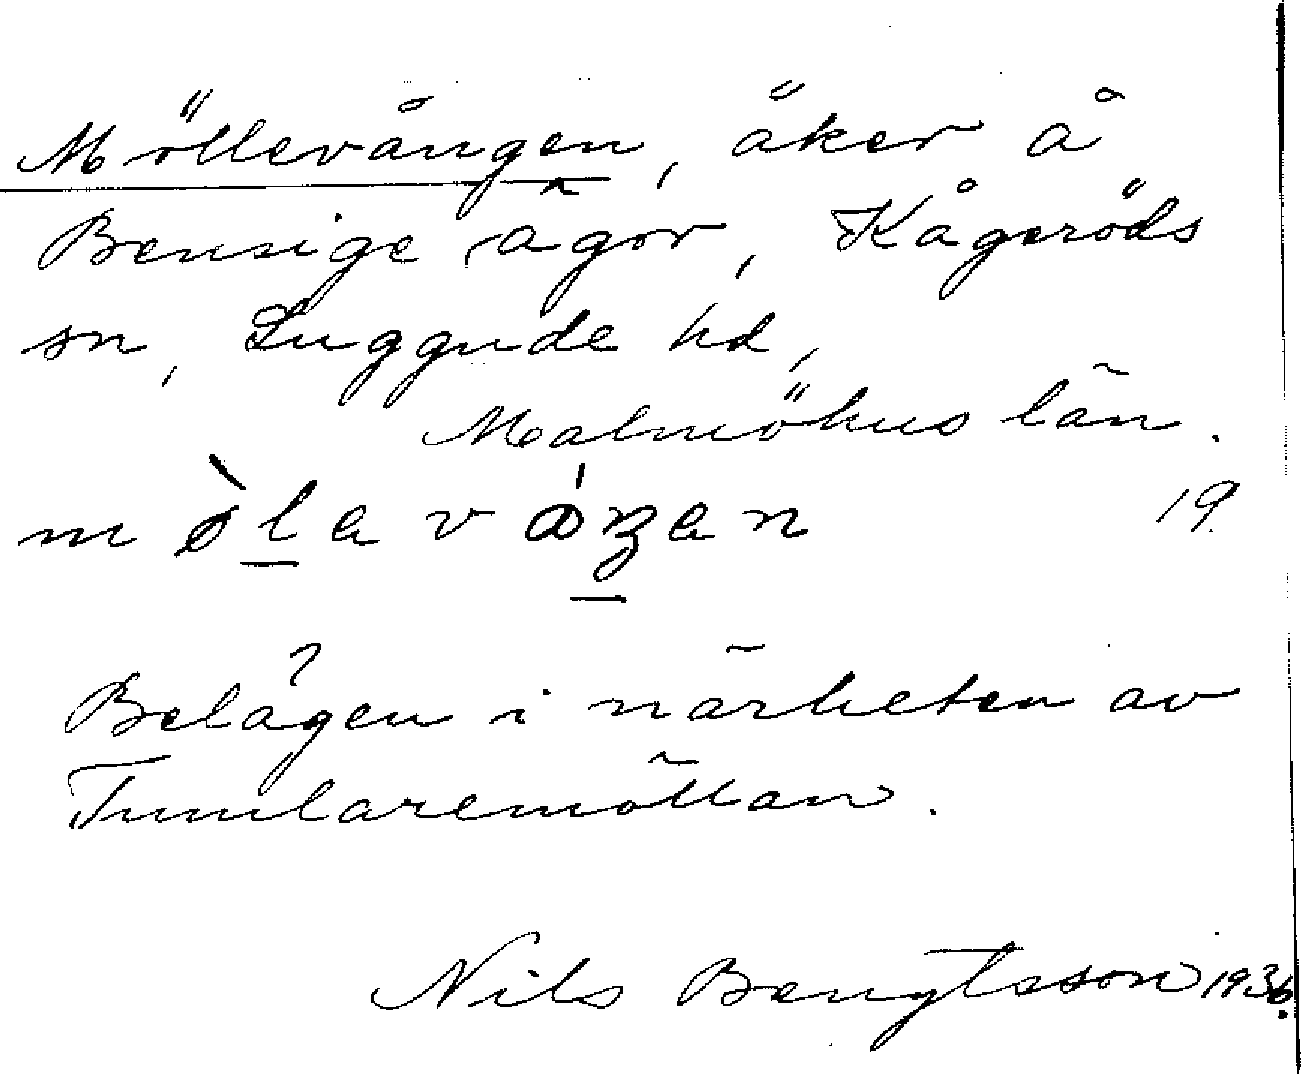 Möllevången, åker å
Bensige ägor, Kågeröds
sn, Luggude hd,
Malmöhus län.
mòlaváŋan 19.
Belägen i närheten av
Tumlaremöllan.
Nils Bengtsson 1936.